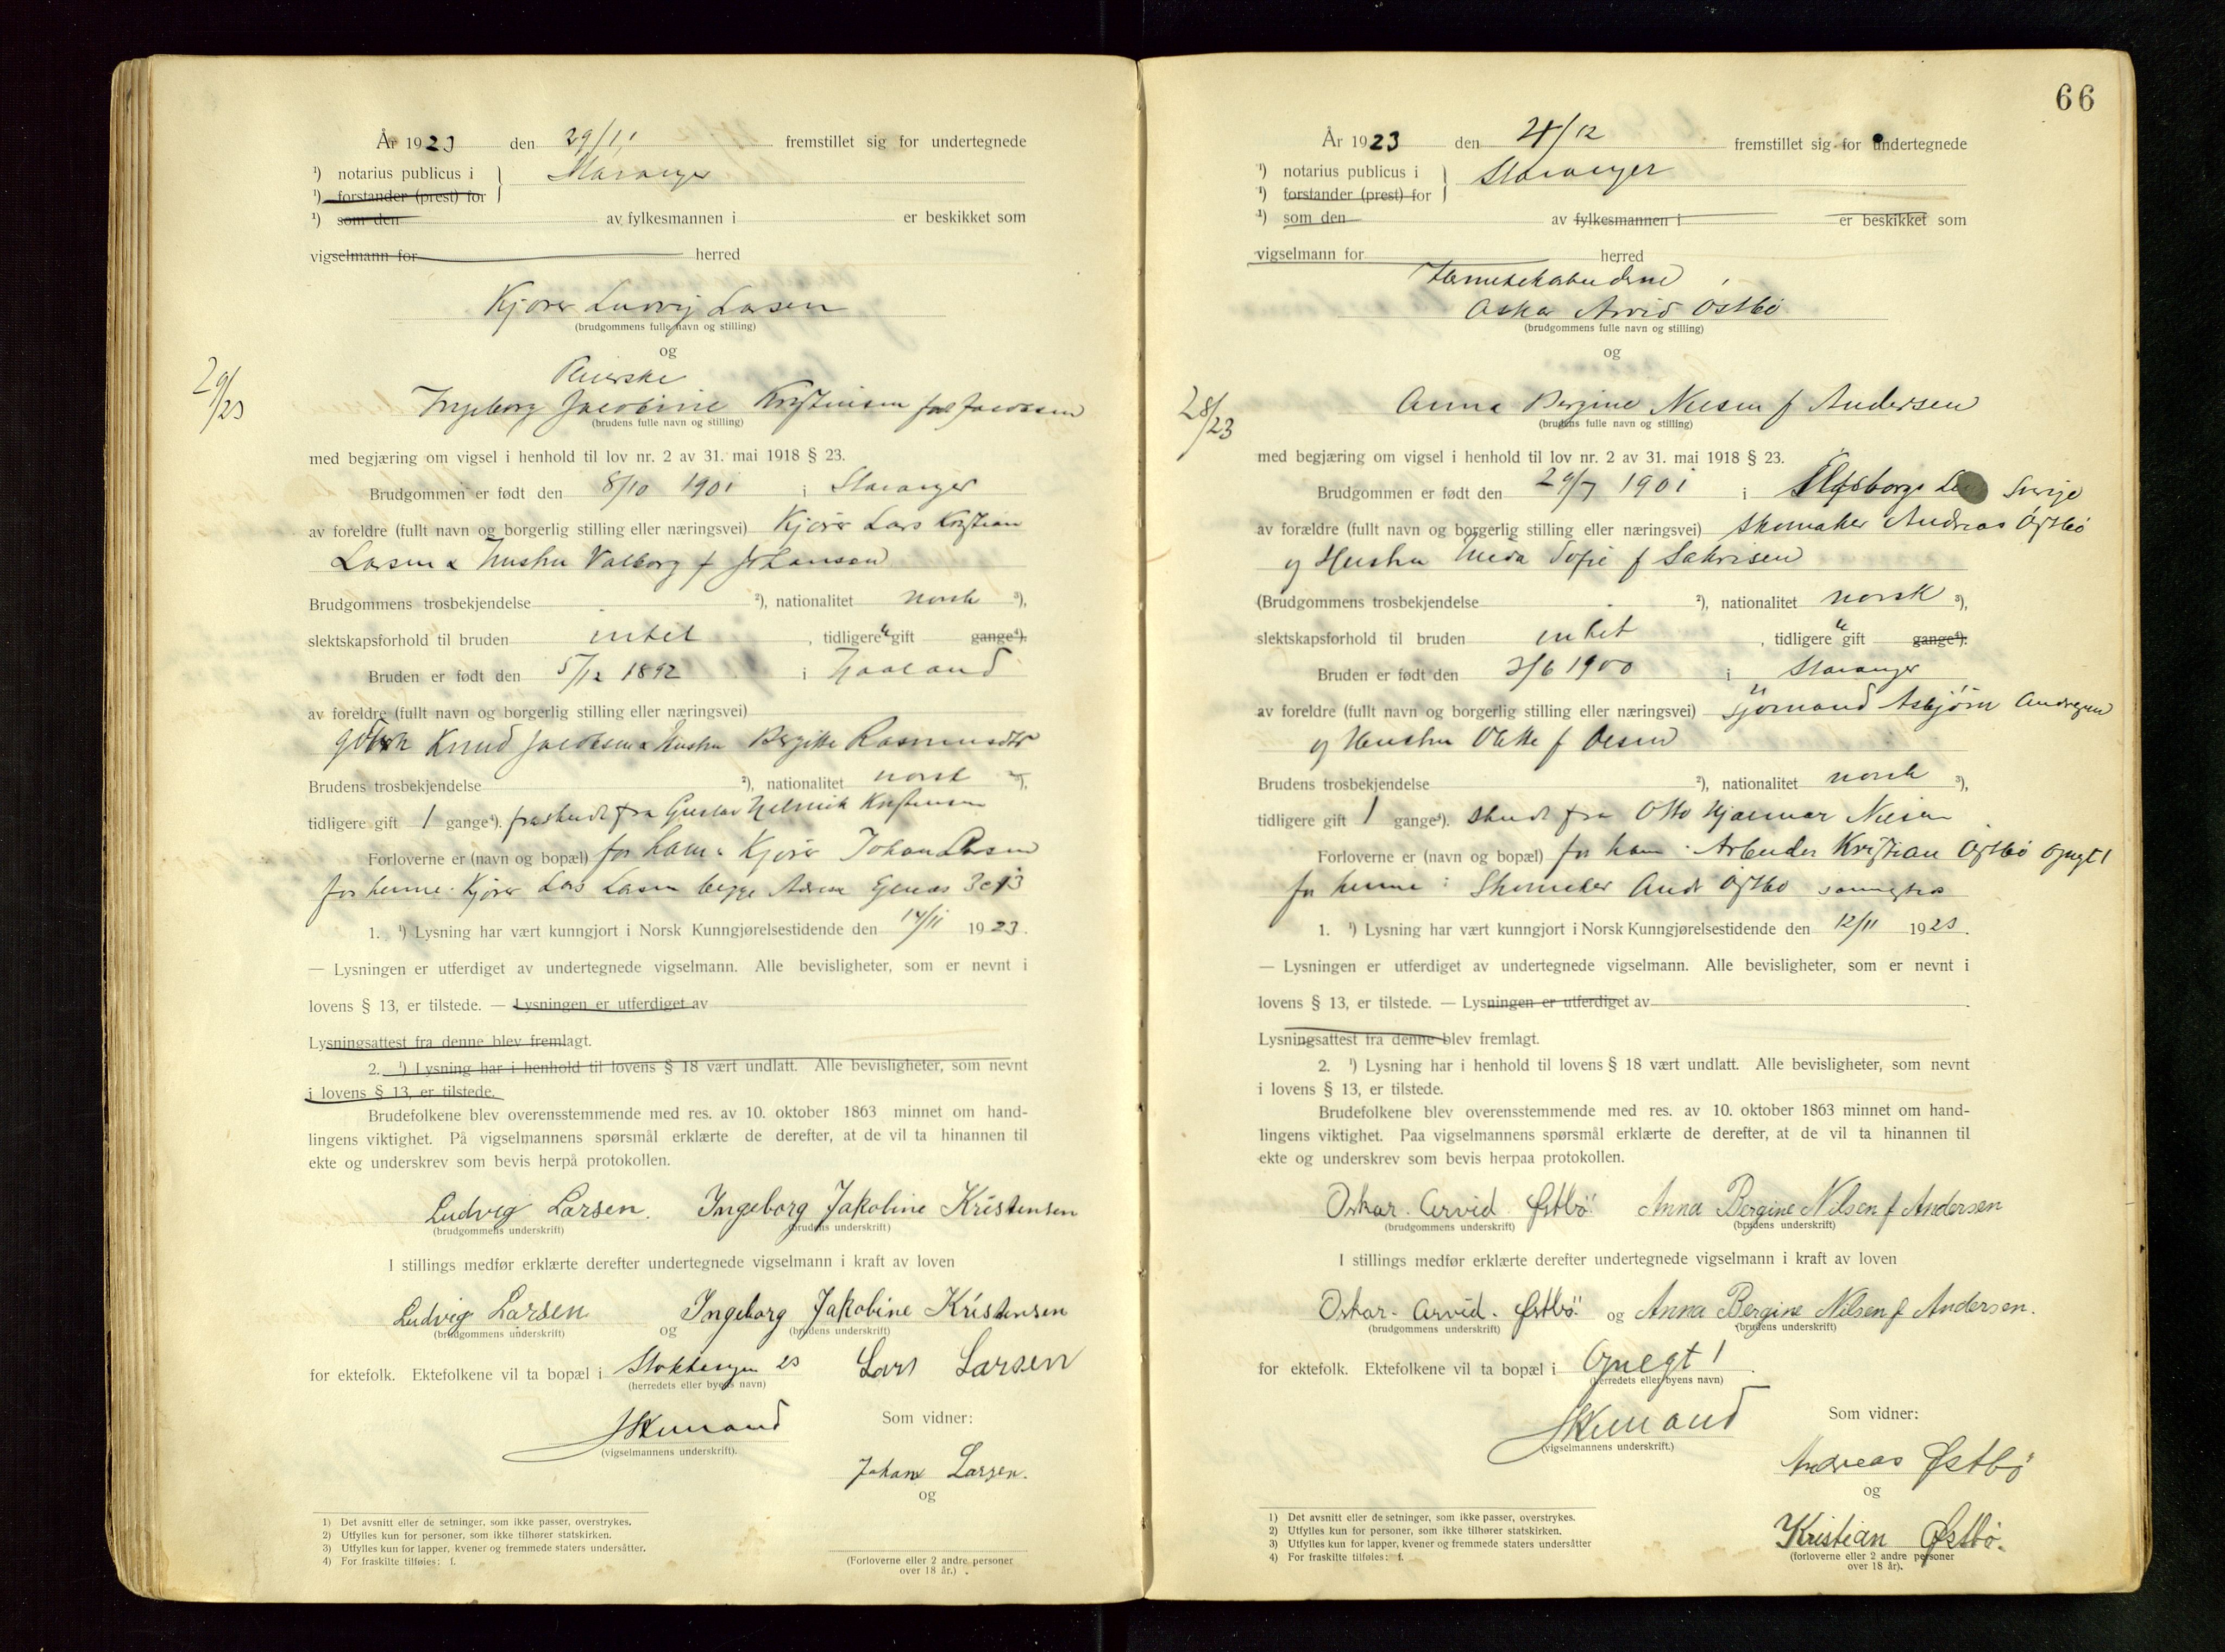 År 1923 den 29/11 fremstillet sig for undertegnede
¹) notarius publicus i } Stavanger
¹) forstander (prest) for
¹) som den av fylkesmannen i er beskikket som
vigselmann for herred
Kjører Ludvig Larsen
(brudgommens fulle navn og stilling)
og
Ingeborg Jacobine Kristensen født Jacobsen
(brudens fulle navn og stilling)
29/23
med begjæring om vigsel i henhold til lov nr. 2 av 31. mai 1918 § 23.
Brudgommen er født den 8/10 1901 i Stavanger
av foreldre (fullt navn og borgerlig stilling eller næringsvei) Kjører Lars Kristian
Larsen & Hustru Valborg f Johansen
Brudgommens trosbekjendelse ²), nationalitet norsk ³),
slektskapsforhold til bruden intet , tidligere gift gange⁴).
Bruden er født den 5/12 1892 i Haaland
av foreldre (fullt navn og borgerlig stilling eller næringsvei)
Knud Jacobsen & Hustru Bergitte Rasmusdtr
Brudens trosbekjendelse ²), nationalitet norsk ³),
tidligere gift 1 gange⁴). fraskilt fra Gustav Kristensen
Forloverne er (navn og bopæl) for ham: Kjører Johan Larsen
for henne: Kjører Lars Larsen begge
1. ¹) Lysning har vært kunngjort i Norsk Kunngjørelsestidende den 14/11 1923.
— Lysningen er utferdiget av undertegnede vigselmann. Alle bevisligheter, som er nevnt i
lovens § 13, er tilstede. — Lysningen er utferdiget av
Lysningsattest fra denne blev fremlagt.
2. ¹) Lysning har i henhold til lovens § 18 vært undlatt. Alle bevisligheter, som nevnt
i lovens § 13, er tilstede.
Brudefolkene blev overensstemmende med res. av 10. oktober 1863 minnet om hand-
lingens viktighet. På vigselmannens spørsmål erklærte de derefter, at de vil ta hinannen til
ekte og underskrev som bevis herpå protokollen.
Ludvig Larsen. Ingeborg Jakobine Kristensen
(brudgommens underskrift) (brudens underskrift)
I stillings medfør erklærte derefter undertegnede vigselmann i kraft av loven
Ludvig Larsen og Ingeborg Jakobine Kristensen
(brudgommens underskrift) (brudens underskrift)
for ektefolk. Ektefolkene vil ta bopæl i Lars Larsen
(herredets eller byens navn)
Som vidner:
(vigselmannens underskrift).
Johan Larsen.
og
1) Det avsnitt eller de setninger, som ikke passer, overstrykes.
2) Utfylles kun for personer, som ikke tilhører statskirken.
3) Utfylles kun for lapper, kvener og fremmede staters undersåtter.
4) For fraskilte tilføies: f.
(Forloverne eller 2 andre personer
over 18 år.)
66
År 1923 den 4/12 fremstillet sig for undertegnede
¹) notarius publicus i } Stavanger
¹) forstander (prest) for
¹) som den av fylkesmannen i er beskikket som
vigselmann for herred
Oskar Arvid Östbö
(brudgommens fulle navn og stilling)
og
Anna Bergine Nilsen f Andersen
(brudens fulle navn og stilling)
28/23
med begjæring om vigsel i henhold til lov nr. 2 av 31. mai 1918 § 23.
Brudgommen er født den 29/7 1901 i Elfsborgs Len Sverige
av forældre (fullt navn og borgerlig stilling eller næringsvei) Skomaker Andreas Östbö
og Hustru Sofie f Sakrisen
(Brudgommens trosbekjendelse ²), nationalitet norsk ³),
slektskapsforhold til bruden intet , tidligere gift gange⁴).
Bruden er født den 3/6 1900 i Stavanger
av foreldre (fullt navn og borgerlig stilling eller næringsvei) Sjömand Asbjörn Andersen
og Hustru Olette f Olsen
Brudens trosbekjendelse ²), nationalitet norsk ³),
tidligere gift 1 gange⁴). skilt fra Otto Hjalmar Nilsen
Forloverne er (navn og bopæl) for ham: Arbeider Kristian Östbö
for henne: Skomaker Andr Östbö
1. ¹) Lysning har vært kunngjort i Norsk Kunngjørelsestidende den 12/11 1923.
— Lysningen er utferdiget av undertegnede vigselmann. Alle bevisligheter, som er nevnt i
lovens § 13, er tilstede. — Lysningen er utferdiget av
Lysningsattest fra denne blev fremlagt.
2. ¹) Lysning har i henhold til lovens § 18 vært undlatt. Alle bevisligheter, som nevnt
i lovens § 13, er tilstede.
Brudefolkene blev overensstemmende med res. av 10. oktober 1863 minnet om hand-
lingens viktighet. Paa vigselmannens spørsmål erklærte de derefter, at de vil ta hinannen til
ekte og underskrev som bevis herpaa protokollen.
Oskar Arvid Østbö Anna Bergine Nilsen f Andersen
(brudgommens underskrift) (brudens underskrift)
I stillings medfør erklærte derefter undertegnede vigselmann i kraft av loven
Oskar Arvid Østbö og Anna Bergine Nilsen f Andersen.
(brudgommens underskrift) (brudens underskrift)
for ektefolk. Ektefolkene vil ta bopæl i
(herredets eller byens navn)
Som vidner:
(vigselmannens underskrift.)
Andreas Østbö
og
Kristian Østbö.
(forloverne eller 2 andre personer
over 18 år).
1) Det avsnitt eller de setninger, som ikke passer, overstrykes.
2) Utfylles kun for personer, som ikke tilhører statskirken.
3) Utfylles kun for lapper, kvener og fremmede staters undersåtter
4) For fraskilte tilføies: f.